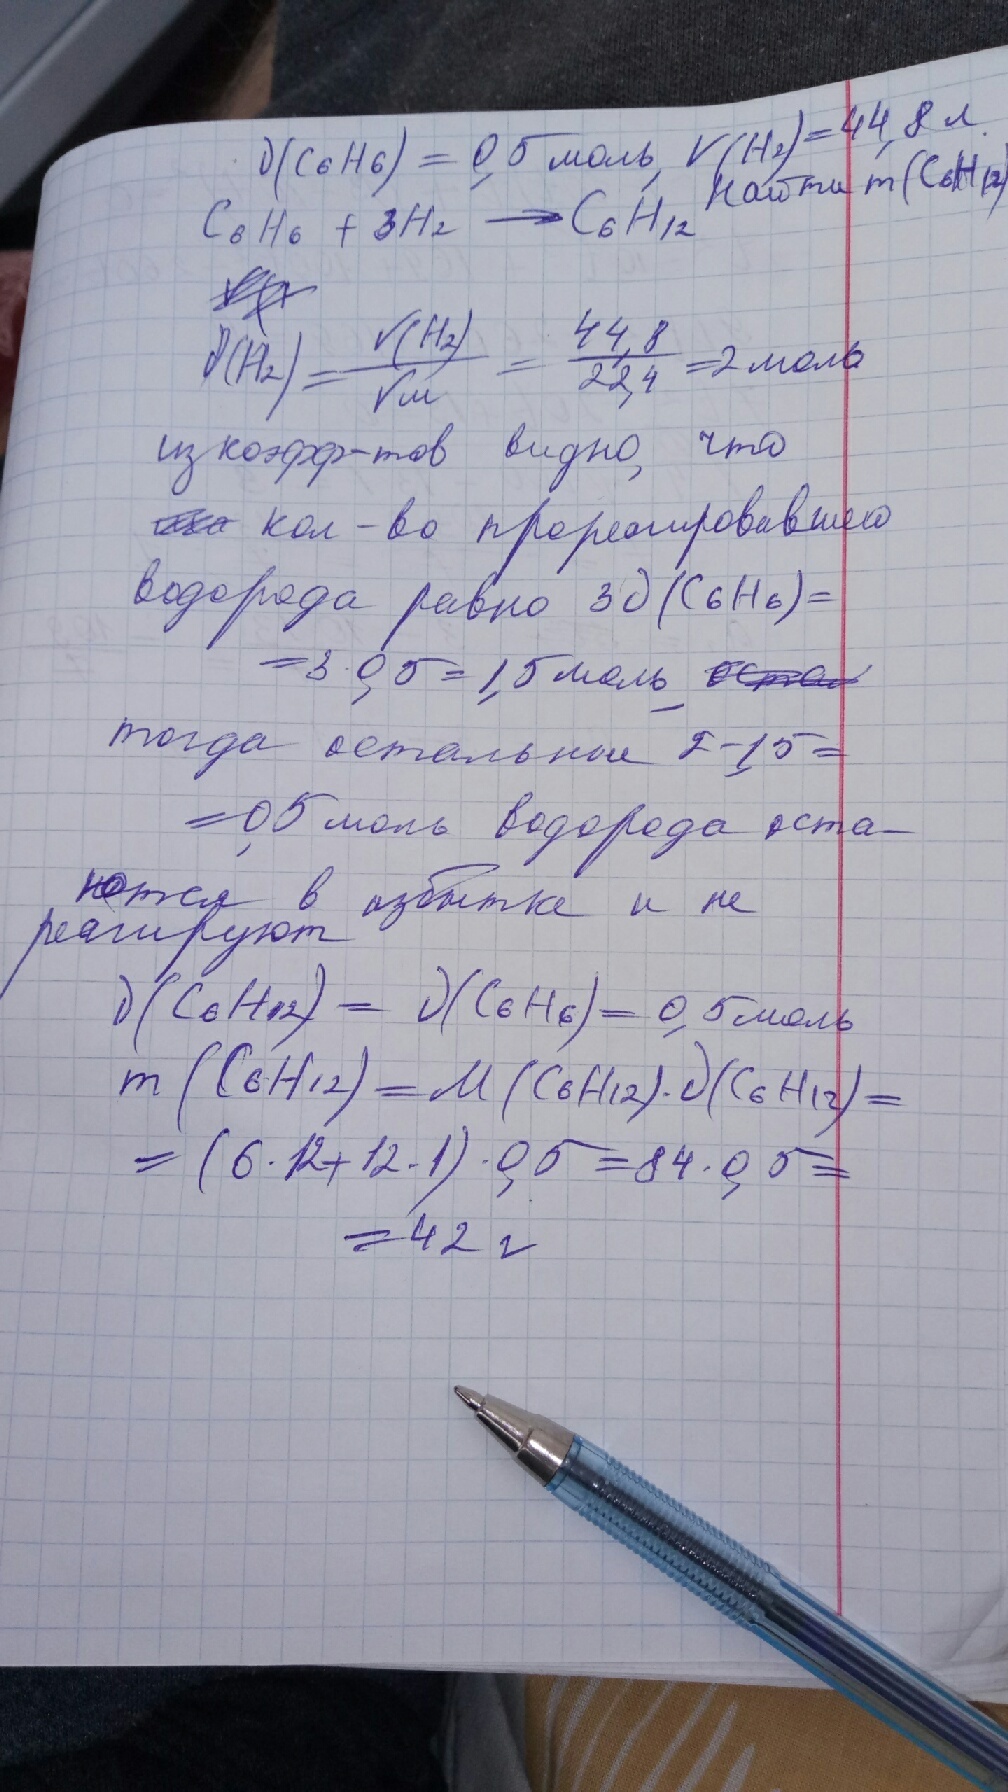 ν(C₆H₆) = 0,5 моль, V(H₂) = 44,8 л.
Найти m(C₆H₁₂)
C₆H₆ + 3H₂ → C₆H₁₂
ν(H₂) = V(H₂)/Vм = 44,8/22,4 = 2 моль
из коэфф-тов видно, что
кол-во прореагировавшего
водорода равно 3ν(C₆H₆) =
= 3·0,5 = 1,5 моль,
тогда остальные 2-1,5 =
= 0,5 моль водорода оста-
нются в избытке и не
реагируют
ν(C₆H₁₂) = ν(C₆H₆) = 0,5 моль
m(C₆H₁₂) = M(C₆H₁₂)·ν(C₆H₁₂) =
= (6·12+12·1)·0,5 = 84·0,5 =
= 42 г